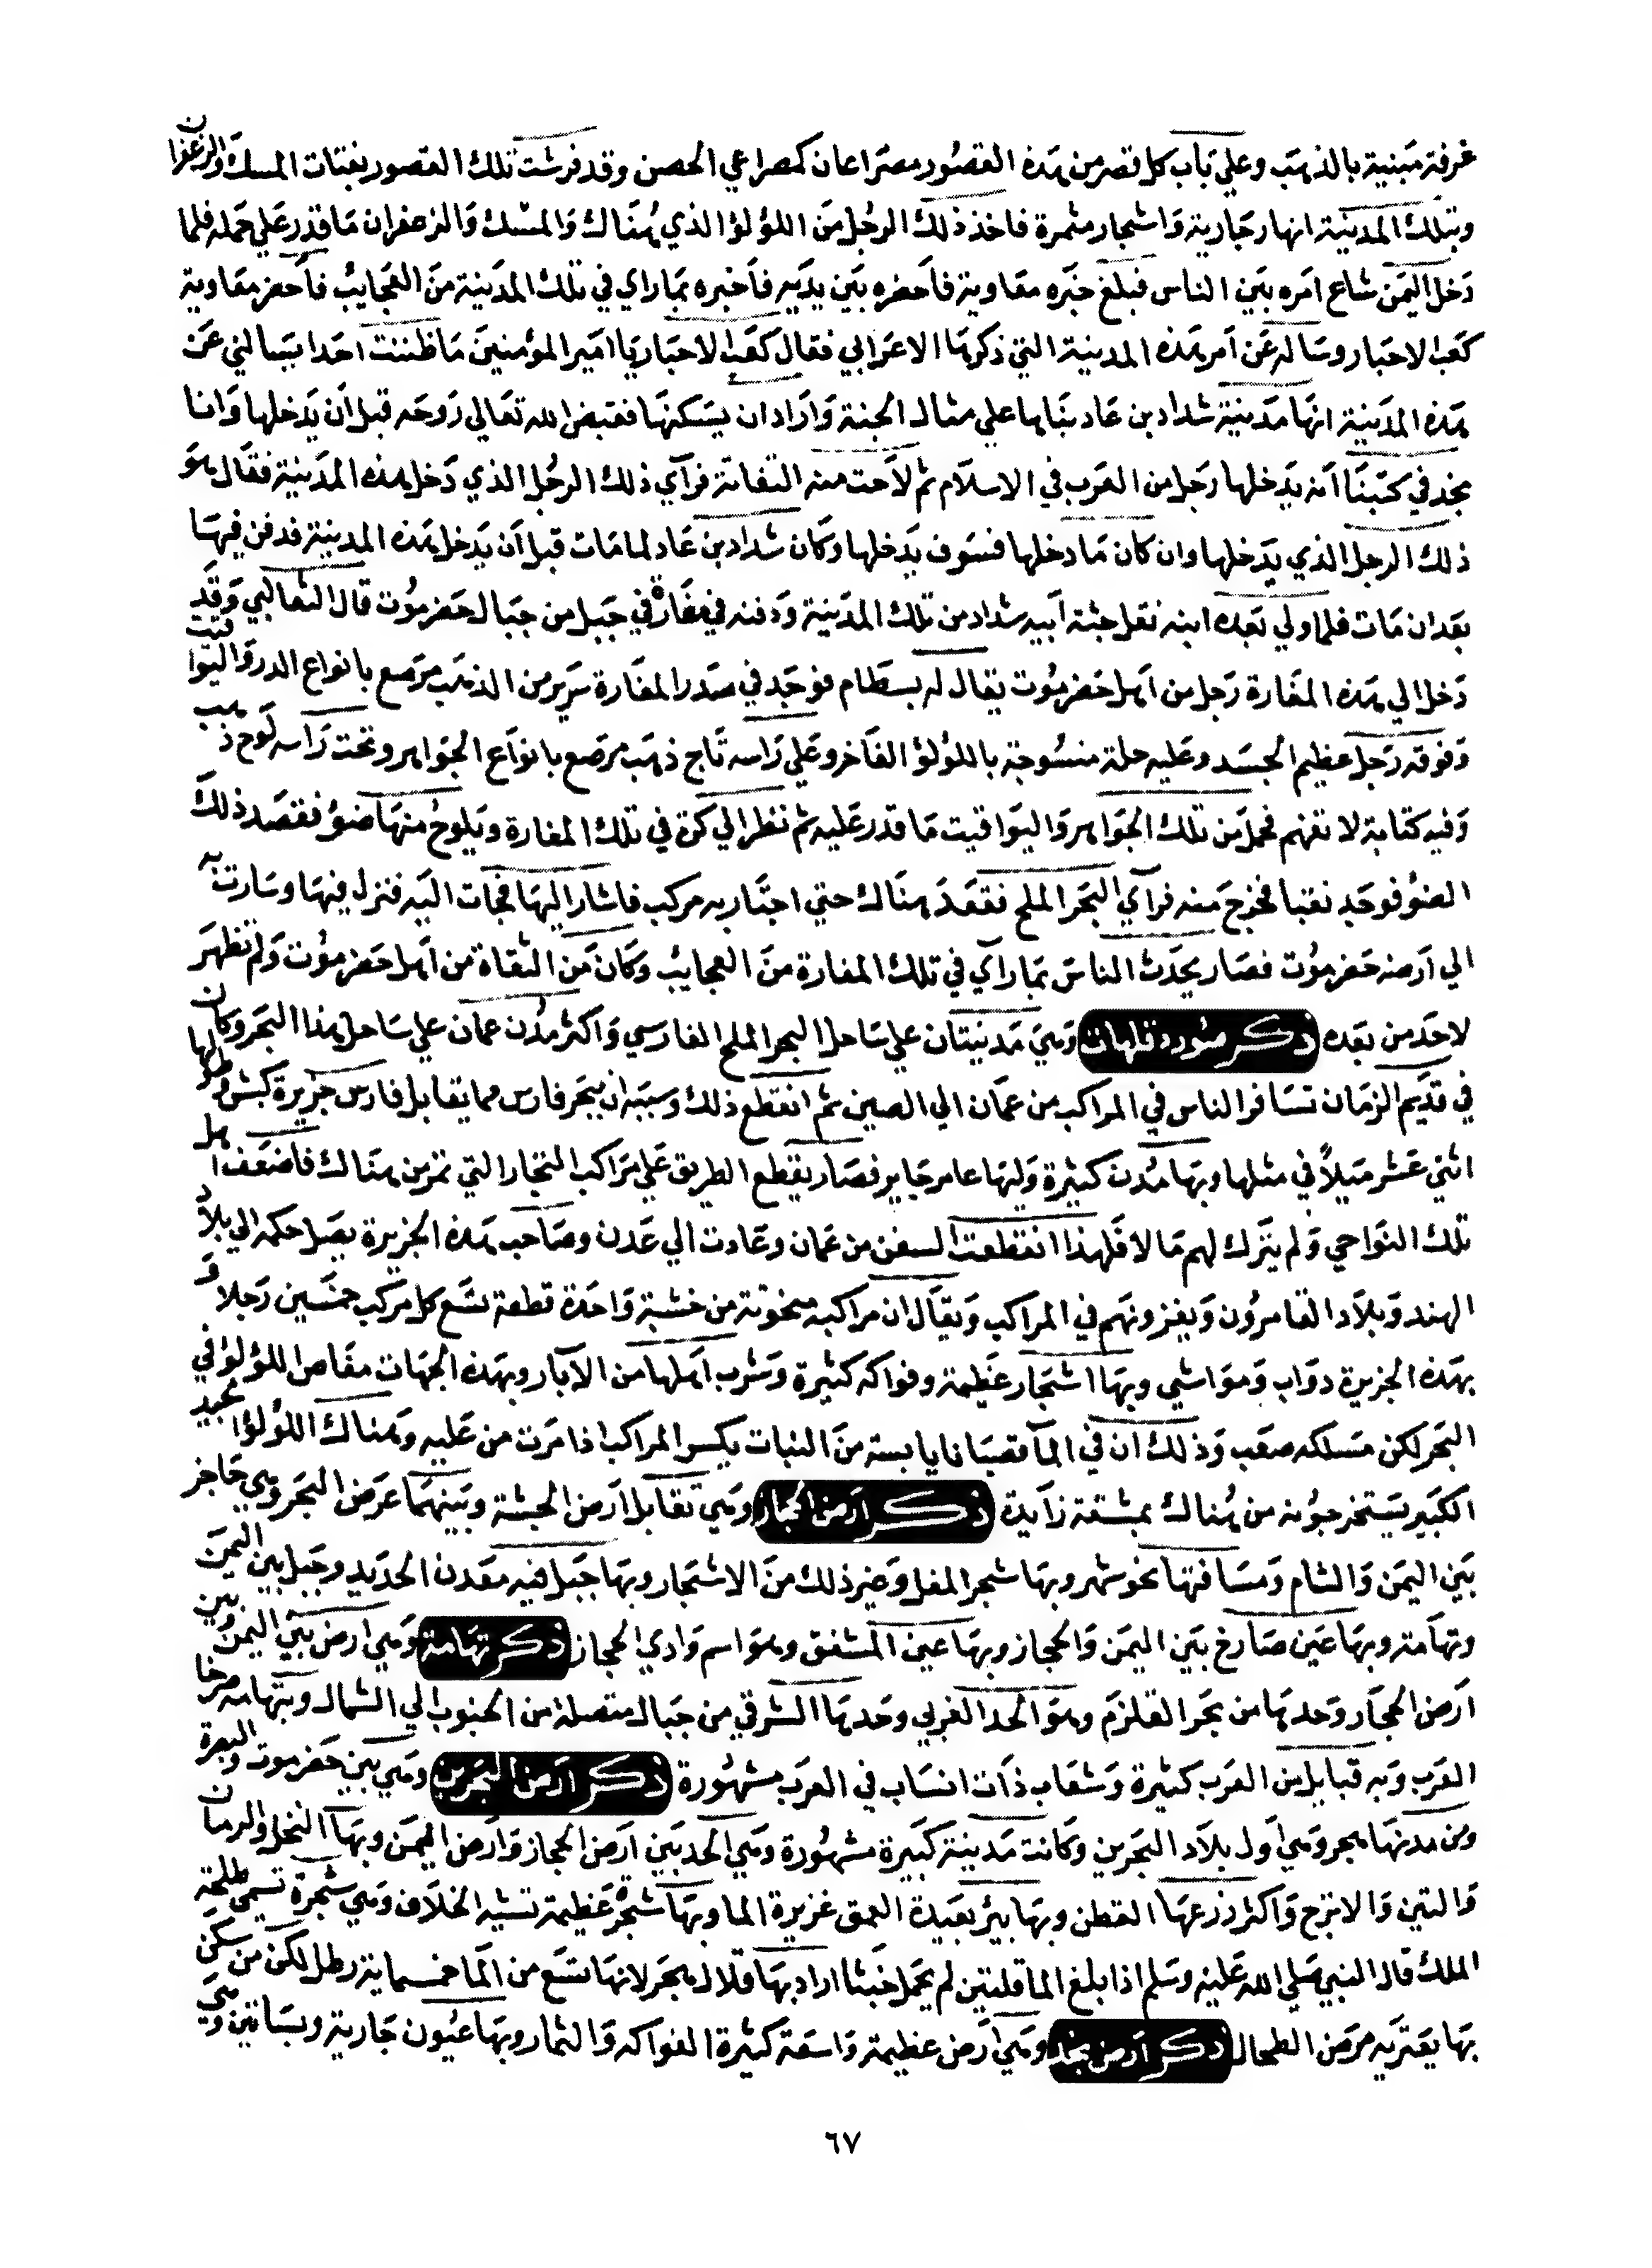 غرفة مبنية بالذهب وعلي باب كل قصر من هذه القصور مصراعان كمصراعي الحصن وقد فرشت تلك القصور بفتات المسك والزعفران
وبتلك المدينة انهار جارية واشجار مثمرة فاخذ ذلك الرجل من اللؤلؤ الذي هناك والمسك والزعفران ما قدر علي حمله فلما
دخل اليمن شاع امره بين الناس فبلغ خبره معاوية فاحضره بين يديه فاخبره بماراي في تلك المدينة من العجايب فاحضر معاوية
كعب الاحبار وساله عن امر هذه المدينة التي ذكرها الاعرابي فقال كعب الاحبار يا امير المؤمنين ما ظننت احدا يسالني عن
هذه المدينة انها مدينة شداد بن عاد بناها علي مثال الجنة واراد ان يسكنها فقبض الله تعالي روحه قبل أن يدخلها وانا
نجد في كتبنا انه يدخلها رجل من العرب في الاسلام ثم لاحت منه التفاتة فرآي ذلك الرجل الذي دخل هذه المدينة فقال هو
ذلك الرجل الذي يدخلها وان كان ما دخلها فسوف يدخلها وكان شداد بن عاد لما مات قبل أن يدخل هذه المدينة فدفن فيها
بعد ان مات فلما ولي بعده ابنه نقل جثة أبيه شداد من تلك المدينة ودفنه في مغارة في جبل من جبال حضرموت قال الثعالبي وقد
دخل الي هذه المغارة رجل من اهل حضرموت يقال له بسطام فوجد في صدر المغارة سرير من الذهب مرصع بانواع الدر واليواقيت
وفوقه رجل عظيم الجسد وعليه حلة منسوجة باللؤلؤ الفاخر وعلي راسه تاج ذهب مرصع بانواع الجواهر وتحت راسه لوح ذهب
وفيه كتابة لا تفهم فحمل من تلك الجواهر واليواقيت ما قدر عليه ثم نظر الي كوة في تلك المغارة ويلوح منها ضؤ فقصد ذلك
الضؤ فوجد نقبا فخرج منه فرآي البحر الملح فقعد هناك حتي اجتاز به مركب فاشار اليها فجات اليه فنزل فيها وسارت به
الي ارض حضرموت فصار يحدث الناس بما رآي في تلك المغارة من العجايب وكان من الثقاة من اهل حضرموت ولم تظهر
لاحد من بعده ذكر صور وقلهات وهي مدينتان علي ساحل البحر الملح الفارسي واكثر مدن عمان علي ساحل هذا البحر وكان
في قديم الزمان تسافر الناس في المراكب من عمان الي الصين ثم انقطع ذلك وسببه ان ببحر فارس مما يقابل فارس جزيرة كيش طولها
اثني عشر ميلاً في مثلها وبها مدن كثيرة ولها عامر جاير فصار يقطع الطريق علي مراكب التجار التي تمر من هناك فاضعف اهل
تلك النواحي ولم يترك لهم مالا فلهذا انقطعت السفن من عمان وعادت الي عدن وصاحب هذه الجزيرة يصل حكمه الي بلاد
الهند وبلاد القامرون ويغزونهم في المراكب ويقال ان مراكبه منحوتة من خشبة واحدة قطعة تسع كل مركب خمسين رجلا و
بهذه الجزيرة دواب ومواشي وبها اشجار عظيمة وفواكه كثيرة وشرب اهلها من الآبار وبهذه الجهات مغاص اللؤلؤ في
البحر لكن مسلكه صعب وذلك ان في المآ قصبا نايا بسة من النبات يكسر المراكب اذا مرت من عليه وهناك اللؤلؤ الجيد
الكبير يستخرجونه من هناك بمشقة زآيدة ذكر ارض الحجاز وهي تقابل ارض الحبشة وبينهما عرض البحر وهي حاجز
بين اليمن والشام ومسافتها نحو شهر وبها شجر المقل وغير ذلك من الاشجار وبها جبل فيه معدن الحديد وجبل بين اليمن
وتهامة وبها عين صارخ بين اليمن والحجاز وبها عين المشفق وهو اسم وادي الحجاز ذكر تهامة وهي ارض بين اليمن وبين
ارض الحجاز وحدها من بحر القلزم وهو الحد الغربي وحدها الشرقي من جبال متصلة من الجنوب الي الشمال وبتهامة
العرب وبه قبايل من العرب كثيرة وشعاب ذآت انساب في العرب مشهورة ذكر ارض البحرين وهي بين حضرموت والبصرة
ومن مدنها هجر وهي أول بلاد البحرين وكانت مدينة كبيرة مشهورة وهي الحد بين ارض الحجاز وارض اليمن وبها النخل والرمان
والتين والاترج واكثر زرعها القطن وبها بئر بعيدة العمق غزيرة الما وبها شجرة عظيمة تشبه الخلاف وهي شجرة تسمي طلحة
الملك قال النبي صلي الله عليه وسلم اذا بلغ الما قلتين لم يحمل خبثا اراد بها قلال هجر لانها تسع من الما خمسماية رطل لكن من سكن
بها يعتريه مرض الطحال ذكر ارض نجد وهي ارض عظيمة واسعة كثيرة الفواكه والثمار وبها عيون جارية وبساتين وهي
٦٧